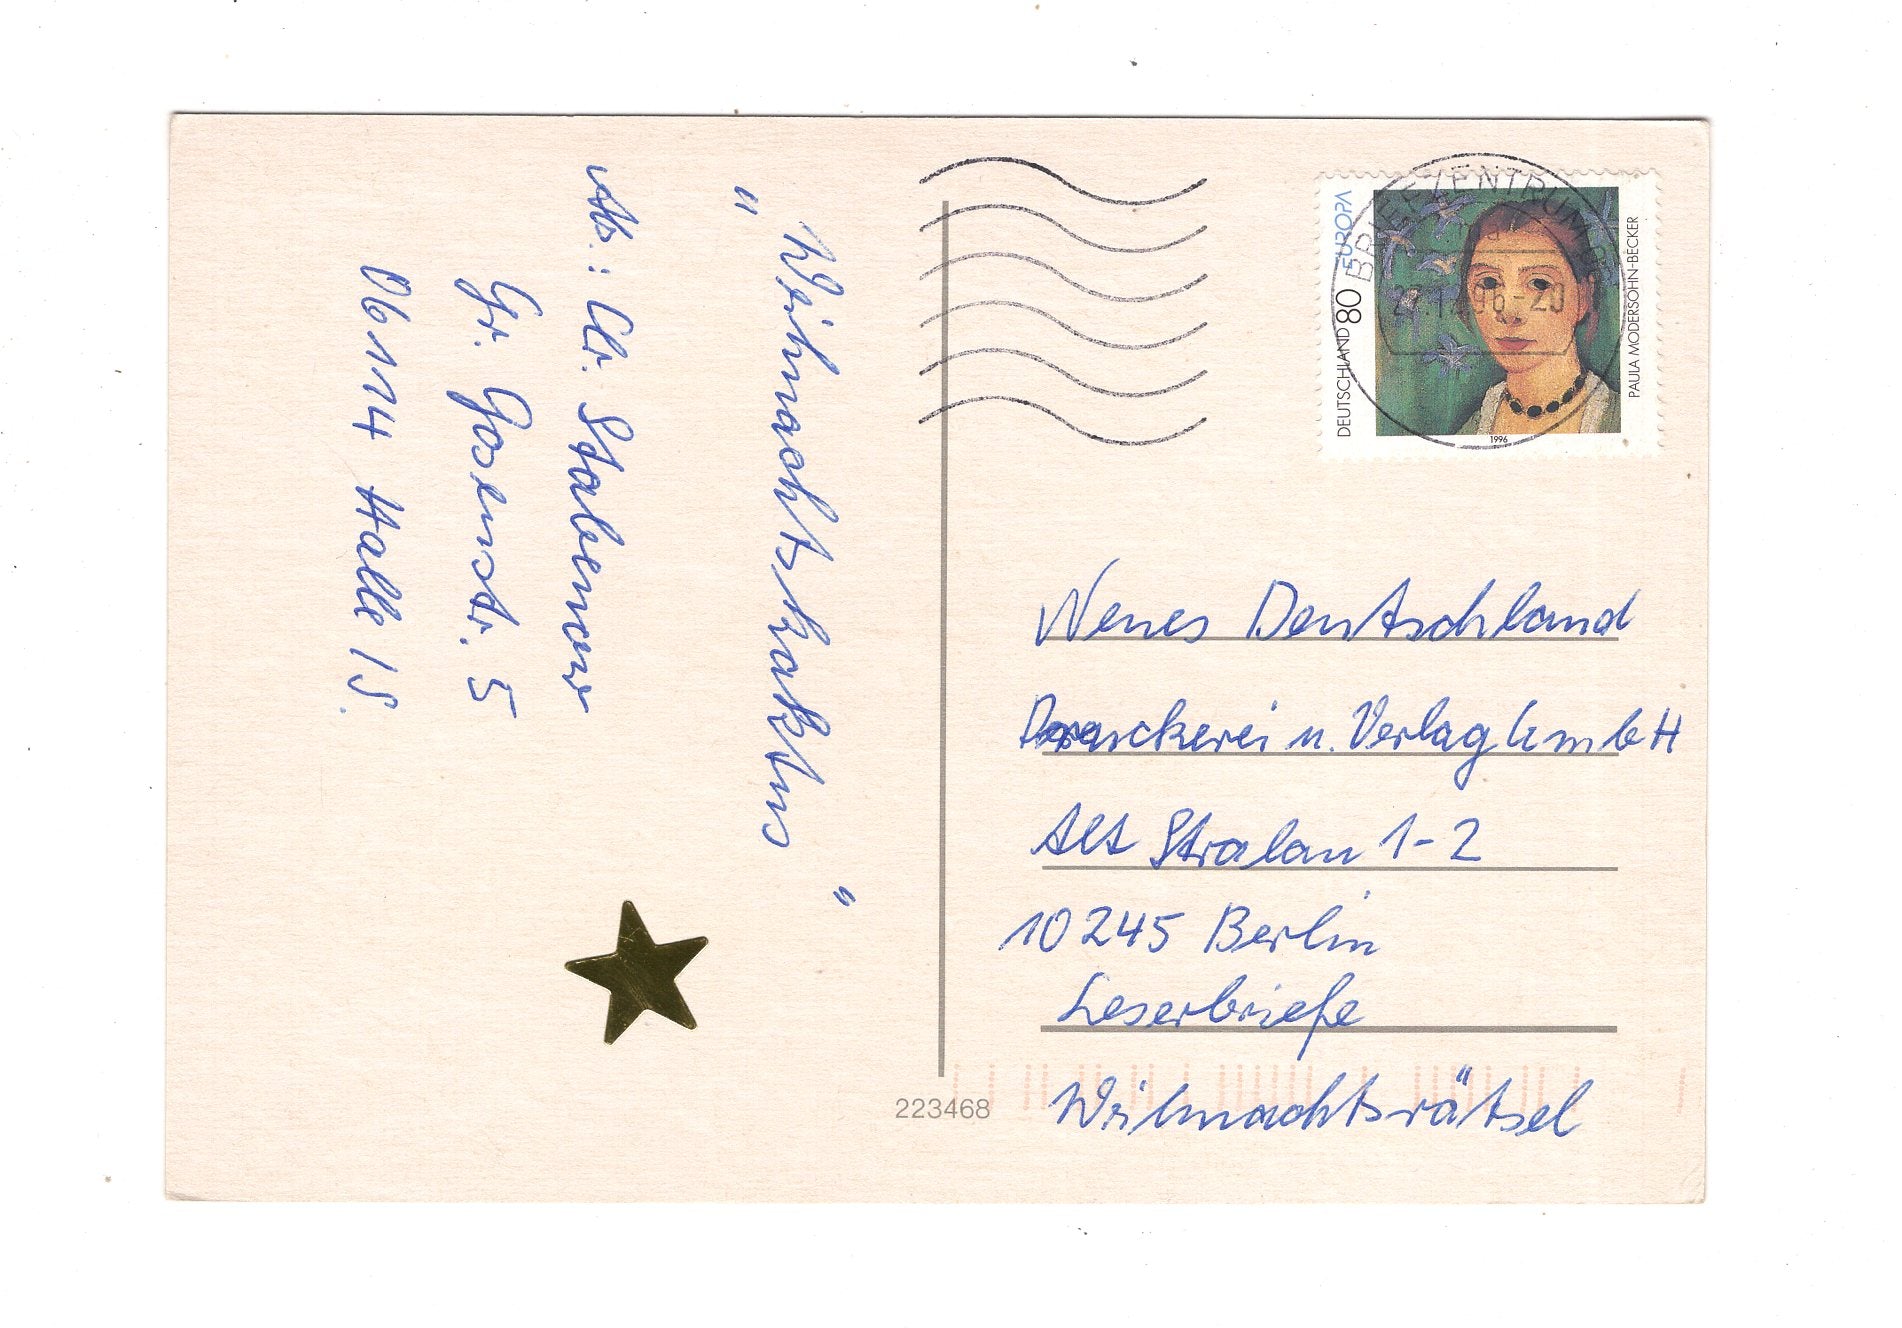 „Weihnachtskaktus"
Ab.: Chr. Stabenow
Gr. Gosenstr. 5
06114 Halle / S.
DEUTSCHLAND 80 EUROPA
PAULA MODERSOHN-BECKER
1996
BRIEFZENTRUM
Neues Deutschland
Druckerei u. Verlag GmbH
Alt Stralau 1-2
10245 Berlin
Leserbriefe
Weihnachtsrätsel
223468